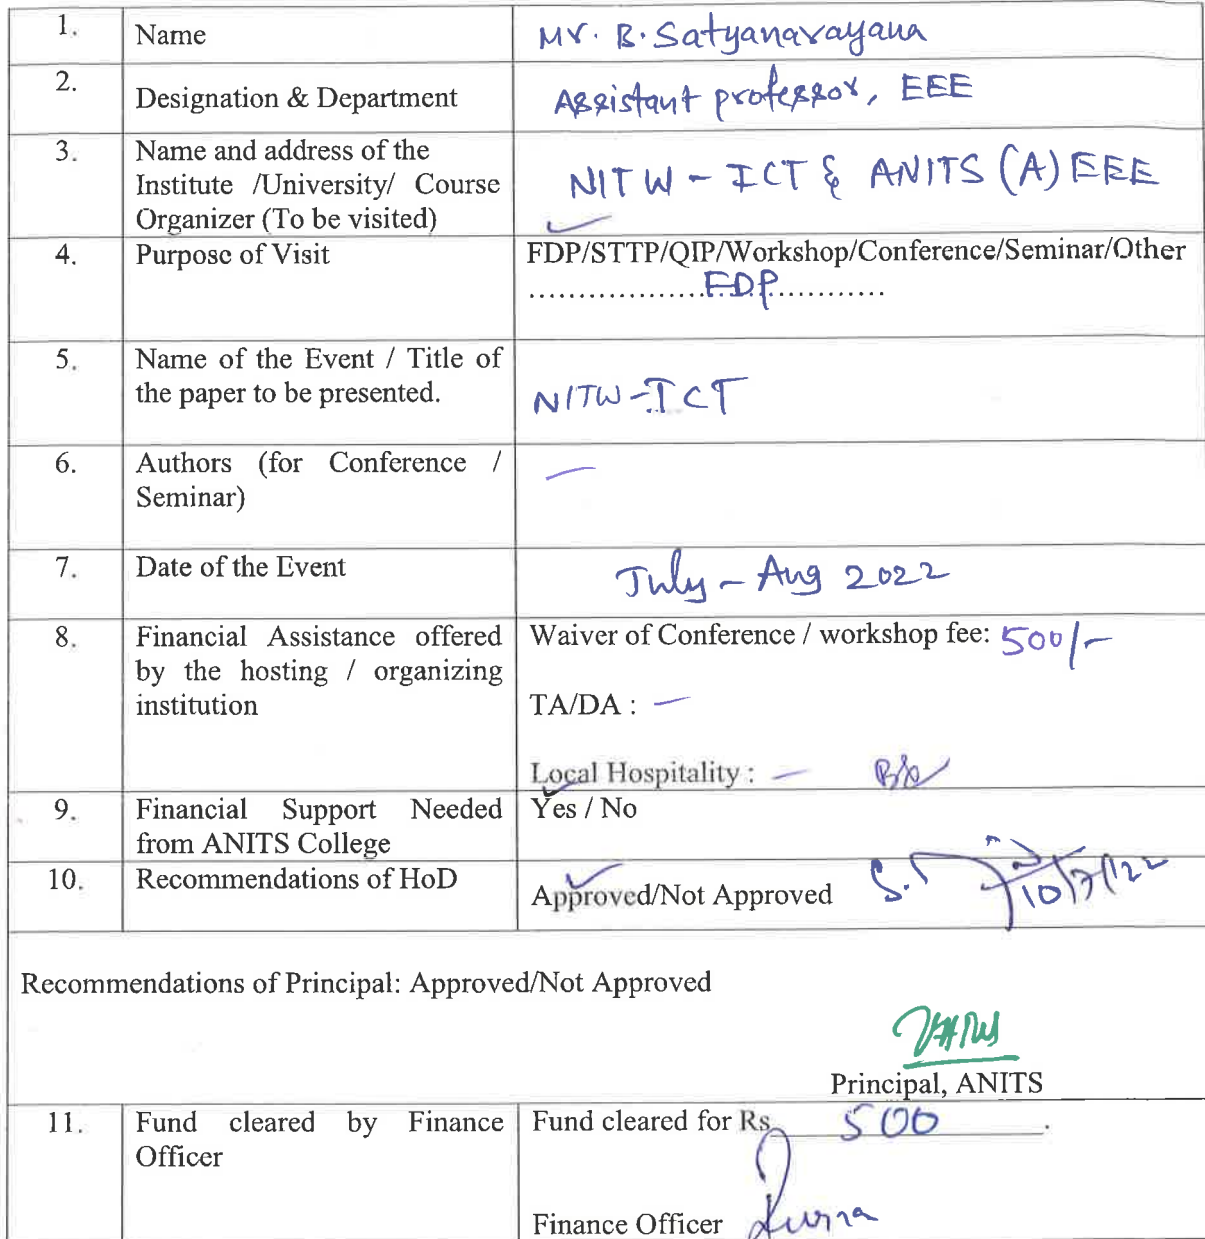 1. Name Mr. B. Satyanarayana
2. Designation & Department Assistant professor, EEE
3. Name and address of the Institute /University/ Course Organizer (To be visited) NITW - ICT & ANITS (A) EEE
4. Purpose of Visit FDP/STTP/QIP/Workshop/Conference/Seminar/Other
..................FDP............
5. Name of the Event / Title of the paper to be presented. NITW-ICT
6. Authors (for Conference / Seminar) —
7. Date of the Event July - Aug 2022
8. Financial Assistance offered by the hosting / organizing institution
Waiver of Conference / workshop fee: 500/-
TA/DA : —
Local Hospitality : —
9. Financial Support Needed from ANITS College Yes / No
10. Recommendations of HoD Approved/Not Approved 10/7/22
Recommendations of Principal: Approved/Not Approved
Principal, ANITS
11. Fund cleared by Finance Officer Fund cleared for Rs 500.
Finance Officer